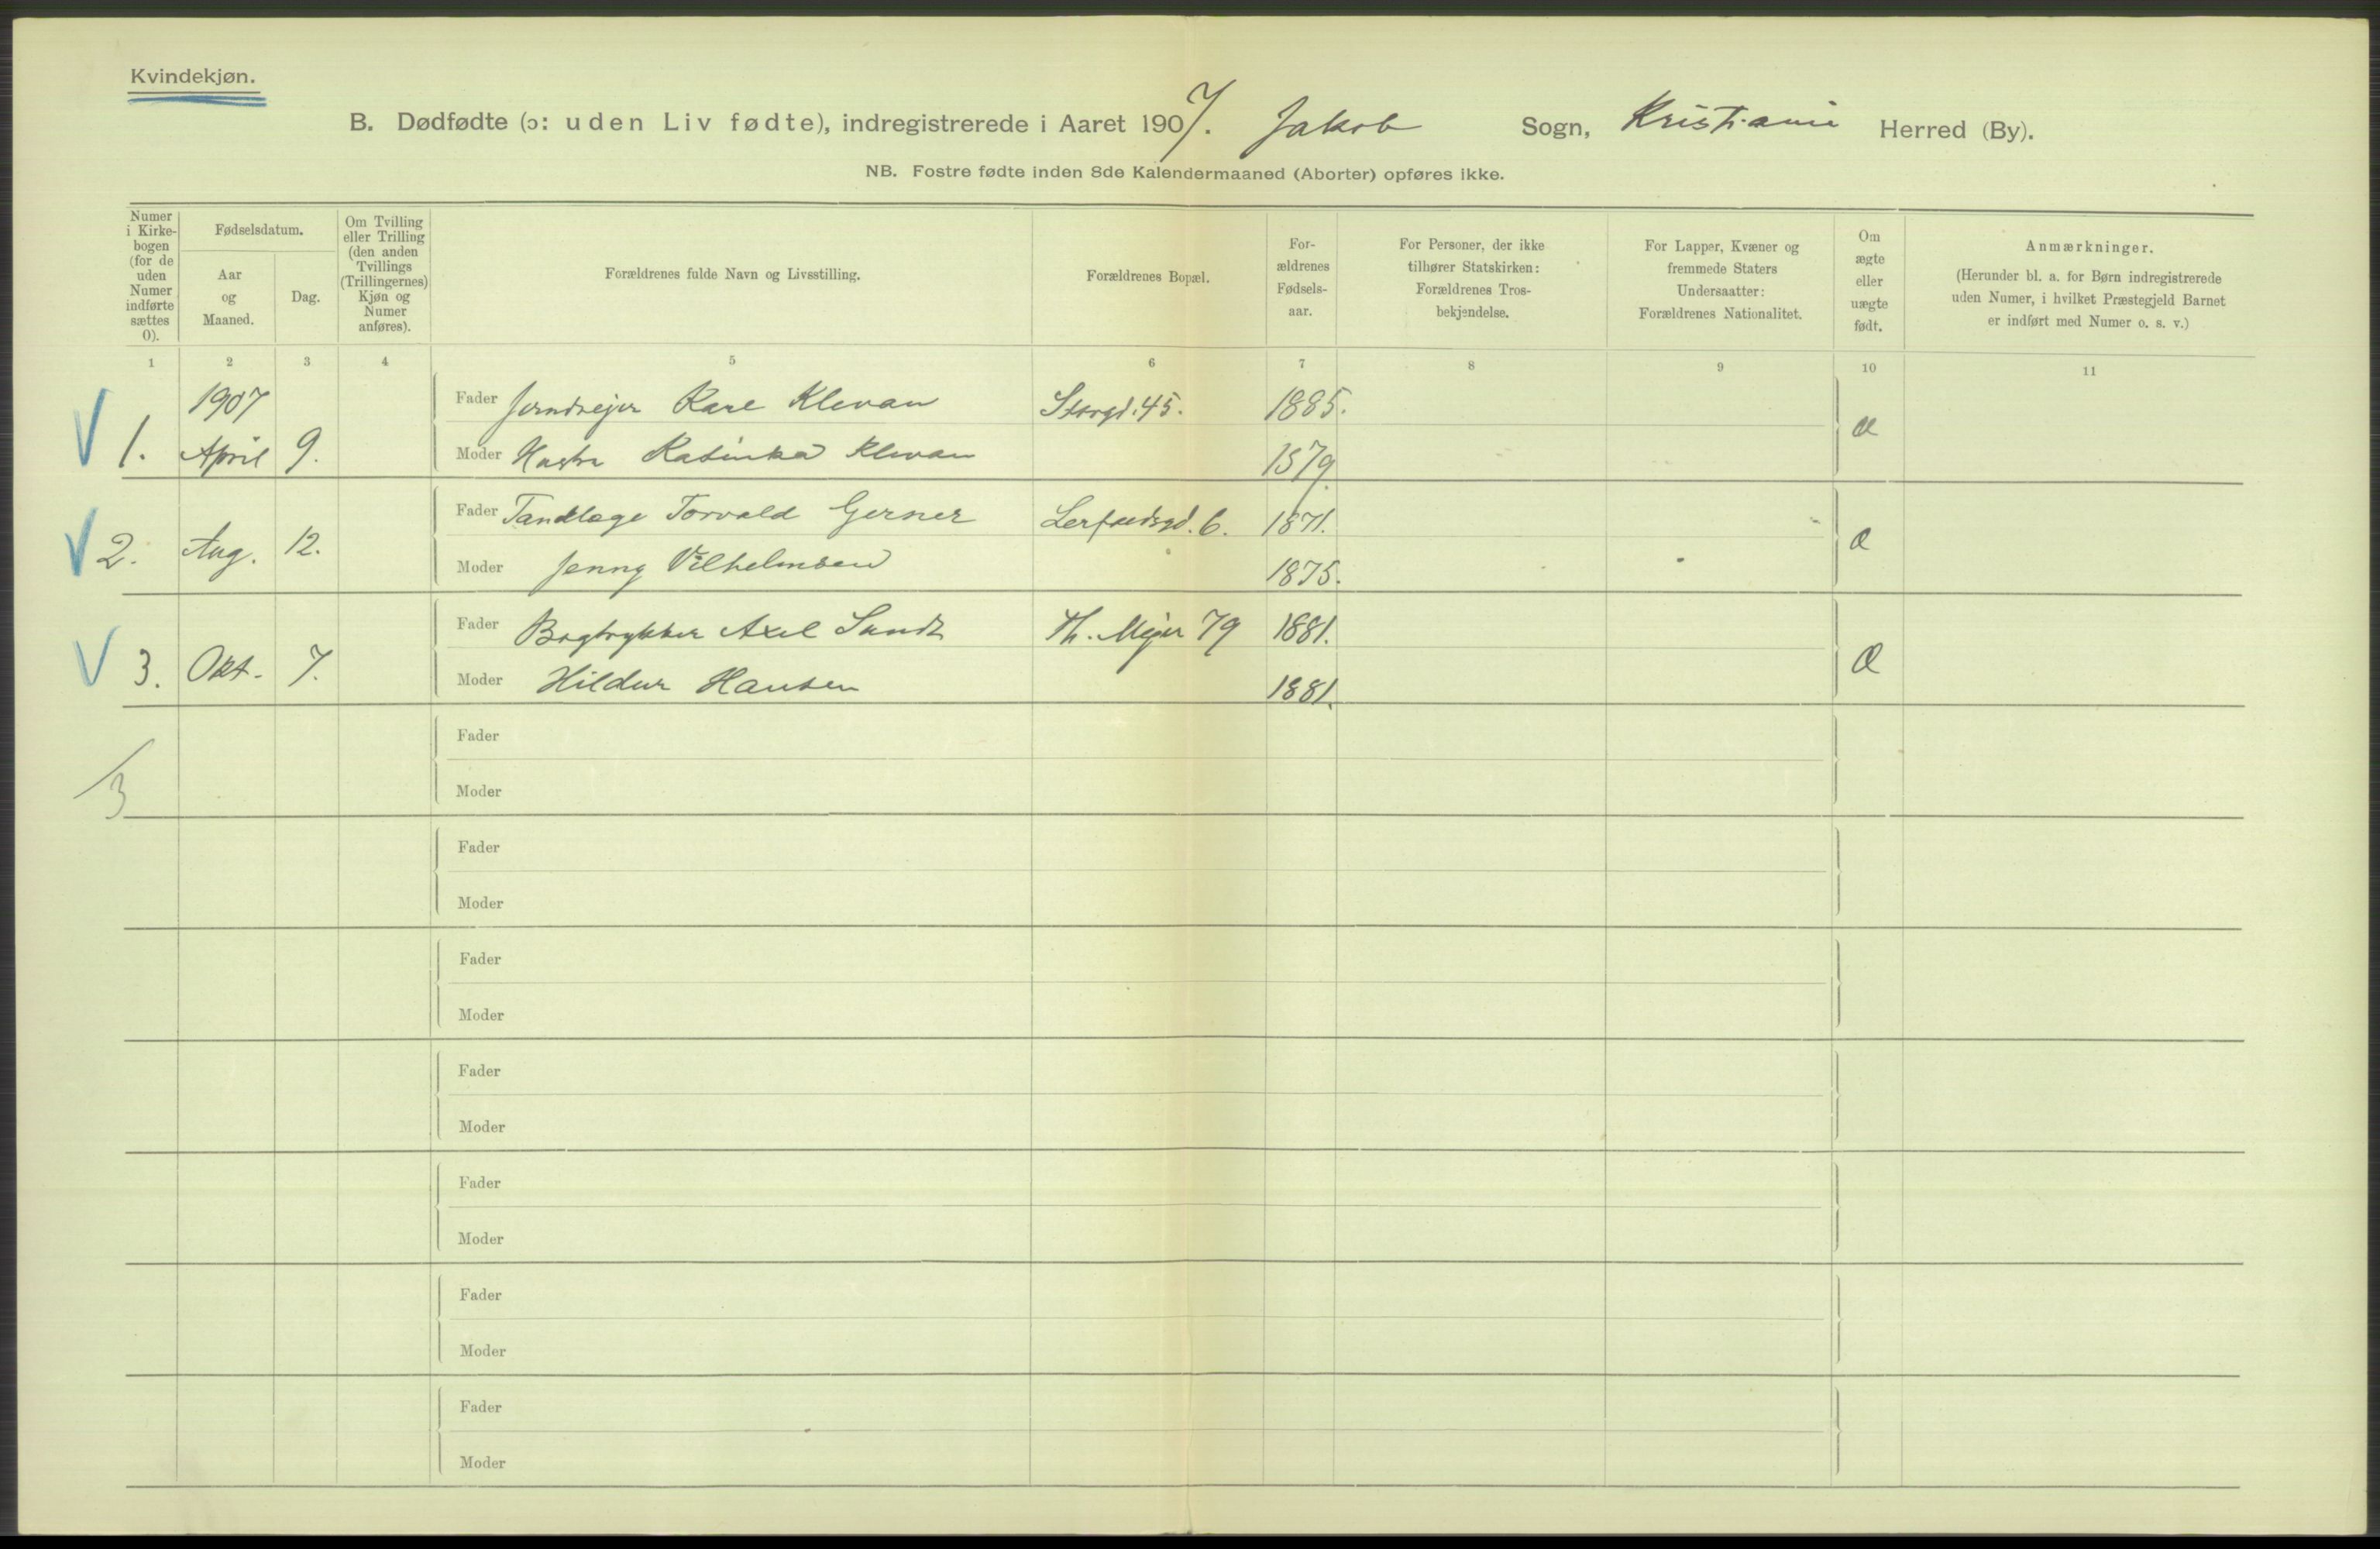 Kvindekjøn.
B. Dødfødte (ɔ: uden Liv fødte), indregistrerede i Aaret 1907. Jakob Sogn, Kristiania Herred (By).
NB. Fostre fødte inden 8de Kalendermaaned (Aborter) opføres ikke.
Numer
i Kirke-
bogen
(for de
uden
Numer
indførte
sættes
0).
Fødselsdatum.
Aar
og
Maaned.
Dag.
Om Tvilling
eller Trilling
(den anden
Tvillings
(Trillingernes)
Kjøn og
Numer
anføres).
Forældrenes fulde Navn og Livsstilling.
Forældrenes Bopæl.
For-
ældrenes
Fødsels-
aar.
For Personer, der ikke
tilhører Statskirken:
Forældrenes Tros-
bekjendelse.
For Lapper, Kvæner og
fremmede Staters
Undersaatter:
Forældrenes Nationalitet.
Om
ægte
eller
uægte
født.
Anmærkninger.
(Herunder bl. a. for Børn indregistrerede
uden Numer, i hvilket Præstegjeld Barnet
er indført med Numer o. s. v.)
1 2 3 4 5 6 7 8 9 10 11
1907
Fader Karl Klevan Storgd. 45. 1885.
1. April 9. Moder Hustru Katinka Klevan 1879. æ
Fader Tandlæge Torvald Gerner 6. 1871.
2. Aug. 12. Moder Jenny Vilhelmsen 1875. æ
Fader Bogtrykker Axel Sundt Th. Mejer 79 1881.
3. Okt. 7. Moder Hildur Hansen 1881. æ
Fader
3
Moder
Fader
Moder
Fader
Moder
Fader
Moder
Fader
Moder
Fader
Moder
Fader
Moder